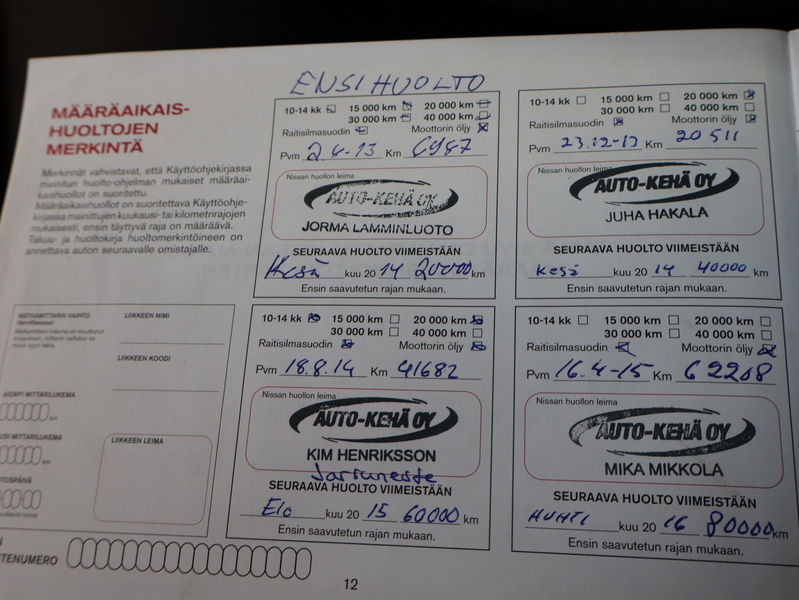 ENSIHUOLTO
MÄÄRÄAIKAIS-
HUOLTOJEN
MERKINTÄ
Merkinnät vahvistavat, että Käyttöohjekirjassa
mainitun huolto-ohjelman mukaiset määräai-
kaishuollot on suoritettu.
Määräaikaishuollot on suoritettava Käyttöohje-
kirjassa mainittujen kuukausi- tai kilometrirajojen
mukaisesti, ensin täyttyvä raja on määräävä.
Takuu- ja huoltokirja huoltomerkintöineen on
annettava auton seuraavalle omistajalle.
10-14 kk 15 000 km 20 000 km
30 000 km 40 000 km
Raitisilmasuodin Moottorin öljy
Pvm 2.4-13 Km 6947
Nissan huollon leima
AUTO-KEHÄ OY
JORMA LAMMINLUOTO
SEURAAVA HUOLTO VIIMEISTÄÄN
Kesä kuu 20 14 20000 km
Ensin saavutetun rajan mukaan.
10-14 kk 15 000 km 20 000 km
30 000 km 40 000 km
Raitisilmasuodin Moottorin öljy
Pvm 23.12-13 Km 20 511
Nissan huollon leima
AUTO-KEHÄ OY
JUHA HAKALA
SEURAAVA HUOLTO VIIMEISTÄÄN
Kesä kuu 20 14 40000 km
Ensin saavutetun rajan mukaan.
MATKAMITTARIN VAIHTO
LIIKKEEN NIMI
LIIKKEEN KOODI
LIIKKEEN LEIMA
km
km
10-14 kk 15 000 km 20 000 km
30 000 km 40 000 km
Raitisilmasuodin Moottorin öljy
Pvm 18.8.14 Km 41682
Nissan huollon leima
AUTO-KEHÄ OY
KIM HENRIKSSON
Jarruneste
SEURAAVA HUOLTO VIIMEISTÄÄN
Elo kuu 20 15 60000 km
Ensin saavutetun rajan mukaan.
10-14 kk 15 000 km 20 000 km
30 000 km 40 000 km
Raitisilmasuodin Moottorin öljy
Pvm 16.4-15 Km 62208
Nissan huollon leima
AUTO-KEHÄ OY
MIKA MIKKOLA
SEURAAVA HUOLTO VIIMEISTÄÄN
HUHTI kuu 20 16 80000 km
Ensin saavutetun rajan mukaan.
12